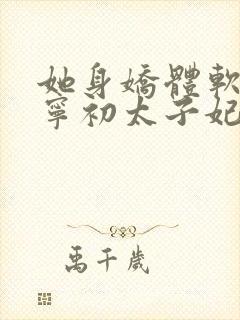 她身嬌體軟
寧初太子妃
禹千歲